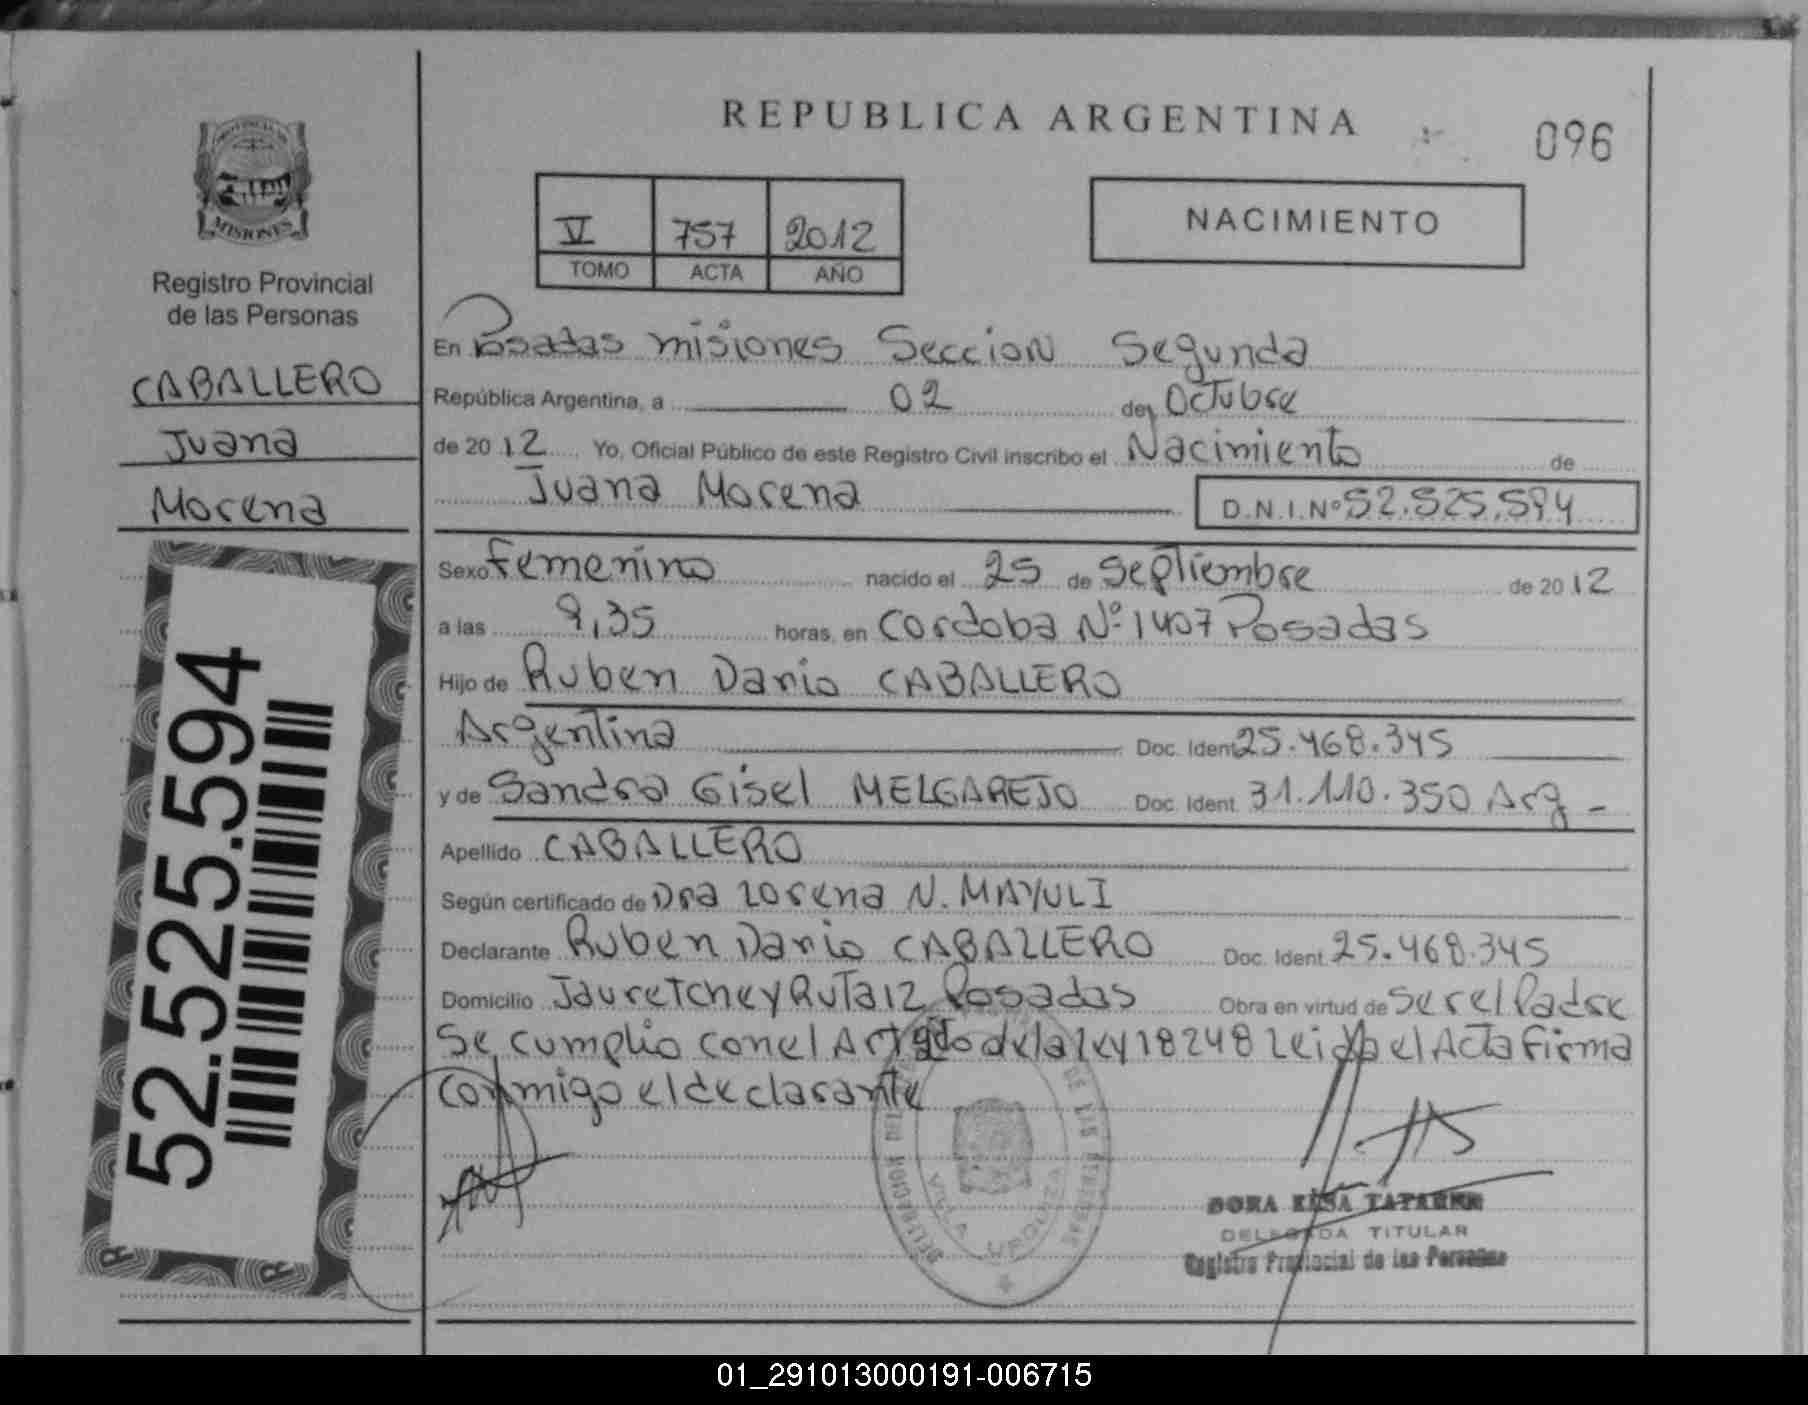 REPUBLICA ARGENTINA
096
PROVINCIA DE
MISIONES
Registro Provincial
de las Personas
CABALLERO
Juana
Morena
52.525.594
V 757 2012
TOMO ACTA AÑO
NACIMIENTO
En Posadas misiones Seccion Segunda
República Argentina, a 02 de Octubre
de 20 12 Yo, Oficial Público de este Registro Civil inscribo el Nacimiento de
Juana Morena D.N.I.Nº 52.525.594
Sexo Femenino nacido el 25 de Septiembre de 20 12
a las 9,35 horas, en Cordoba Nº 1407 Posadas
Hijo de Ruben Dario CABALLERO
Argentina Doc. Ident. 25.468.345
y de Sandra Gisel MELGAREJO Doc. Ident. 31.110.350 Arg -
Apellido CABALLERO
Según certificado de Dra Lorena N. MAYULI
Declarante Ruben Dario CABALLERO Doc. Ident. 25.468.345
Domicilio Jauretche y Ruta 12 Posadas Obra en virtud de ser el Padre
Se cumplio con el Art de la ley 18248 Leida el Acta Firma
conmigo el declarante
DELEGACION DE LAS PERSONAS
VILLA URQUIZA
DORA ELSA
DELEGADA TITULAR
Registro Provincial de las Personas
01_291013000191-006715